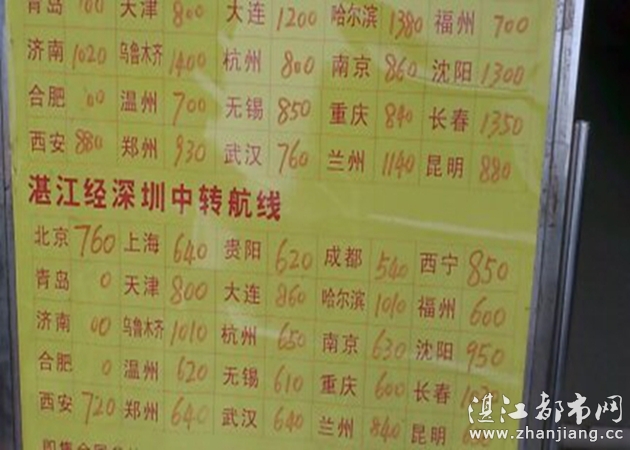 青岛 天津 800 大连 1200 哈尔滨 1380 福州 700
济南 1020 乌鲁木齐 1400 杭州 800 南京 860 沈阳 1300
合肥 温州 700 无锡 850 重庆 840 长春 1350
西安 880 郑州 930 武汉 760 兰州 1140 昆明 880
湛江经深圳中转航线
北京 760 上海 640 贵阳 620 成都 540 西宁 850
青岛 天津 800 大连 860 哈尔滨 1010 福州 600
济南 乌鲁木齐 1010 杭州 650 南京 630 沈阳 950
合肥 温州 620 无锡 610 重庆 600 长春
西安 720 郑州 640 武汉 640 兰州 840 昆明
湛江都市网
www.zhanjiang.cc